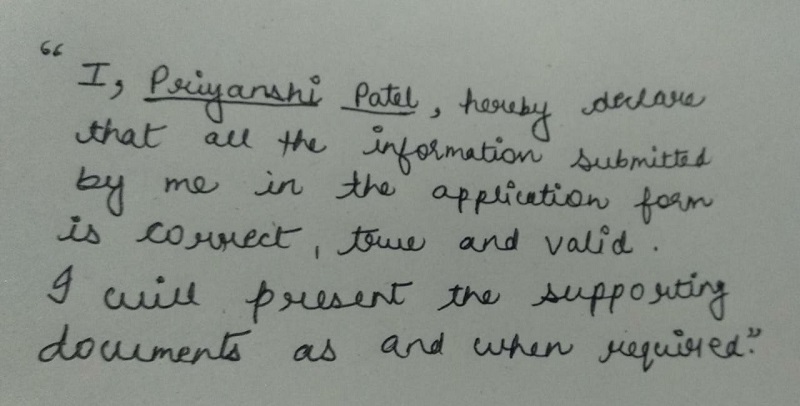 “ I, Priyanshi Patel, hereby declare
that all the information submitted
by me in the application form
is correct, true and valid.
I will present the supporting
documents as and when required.”